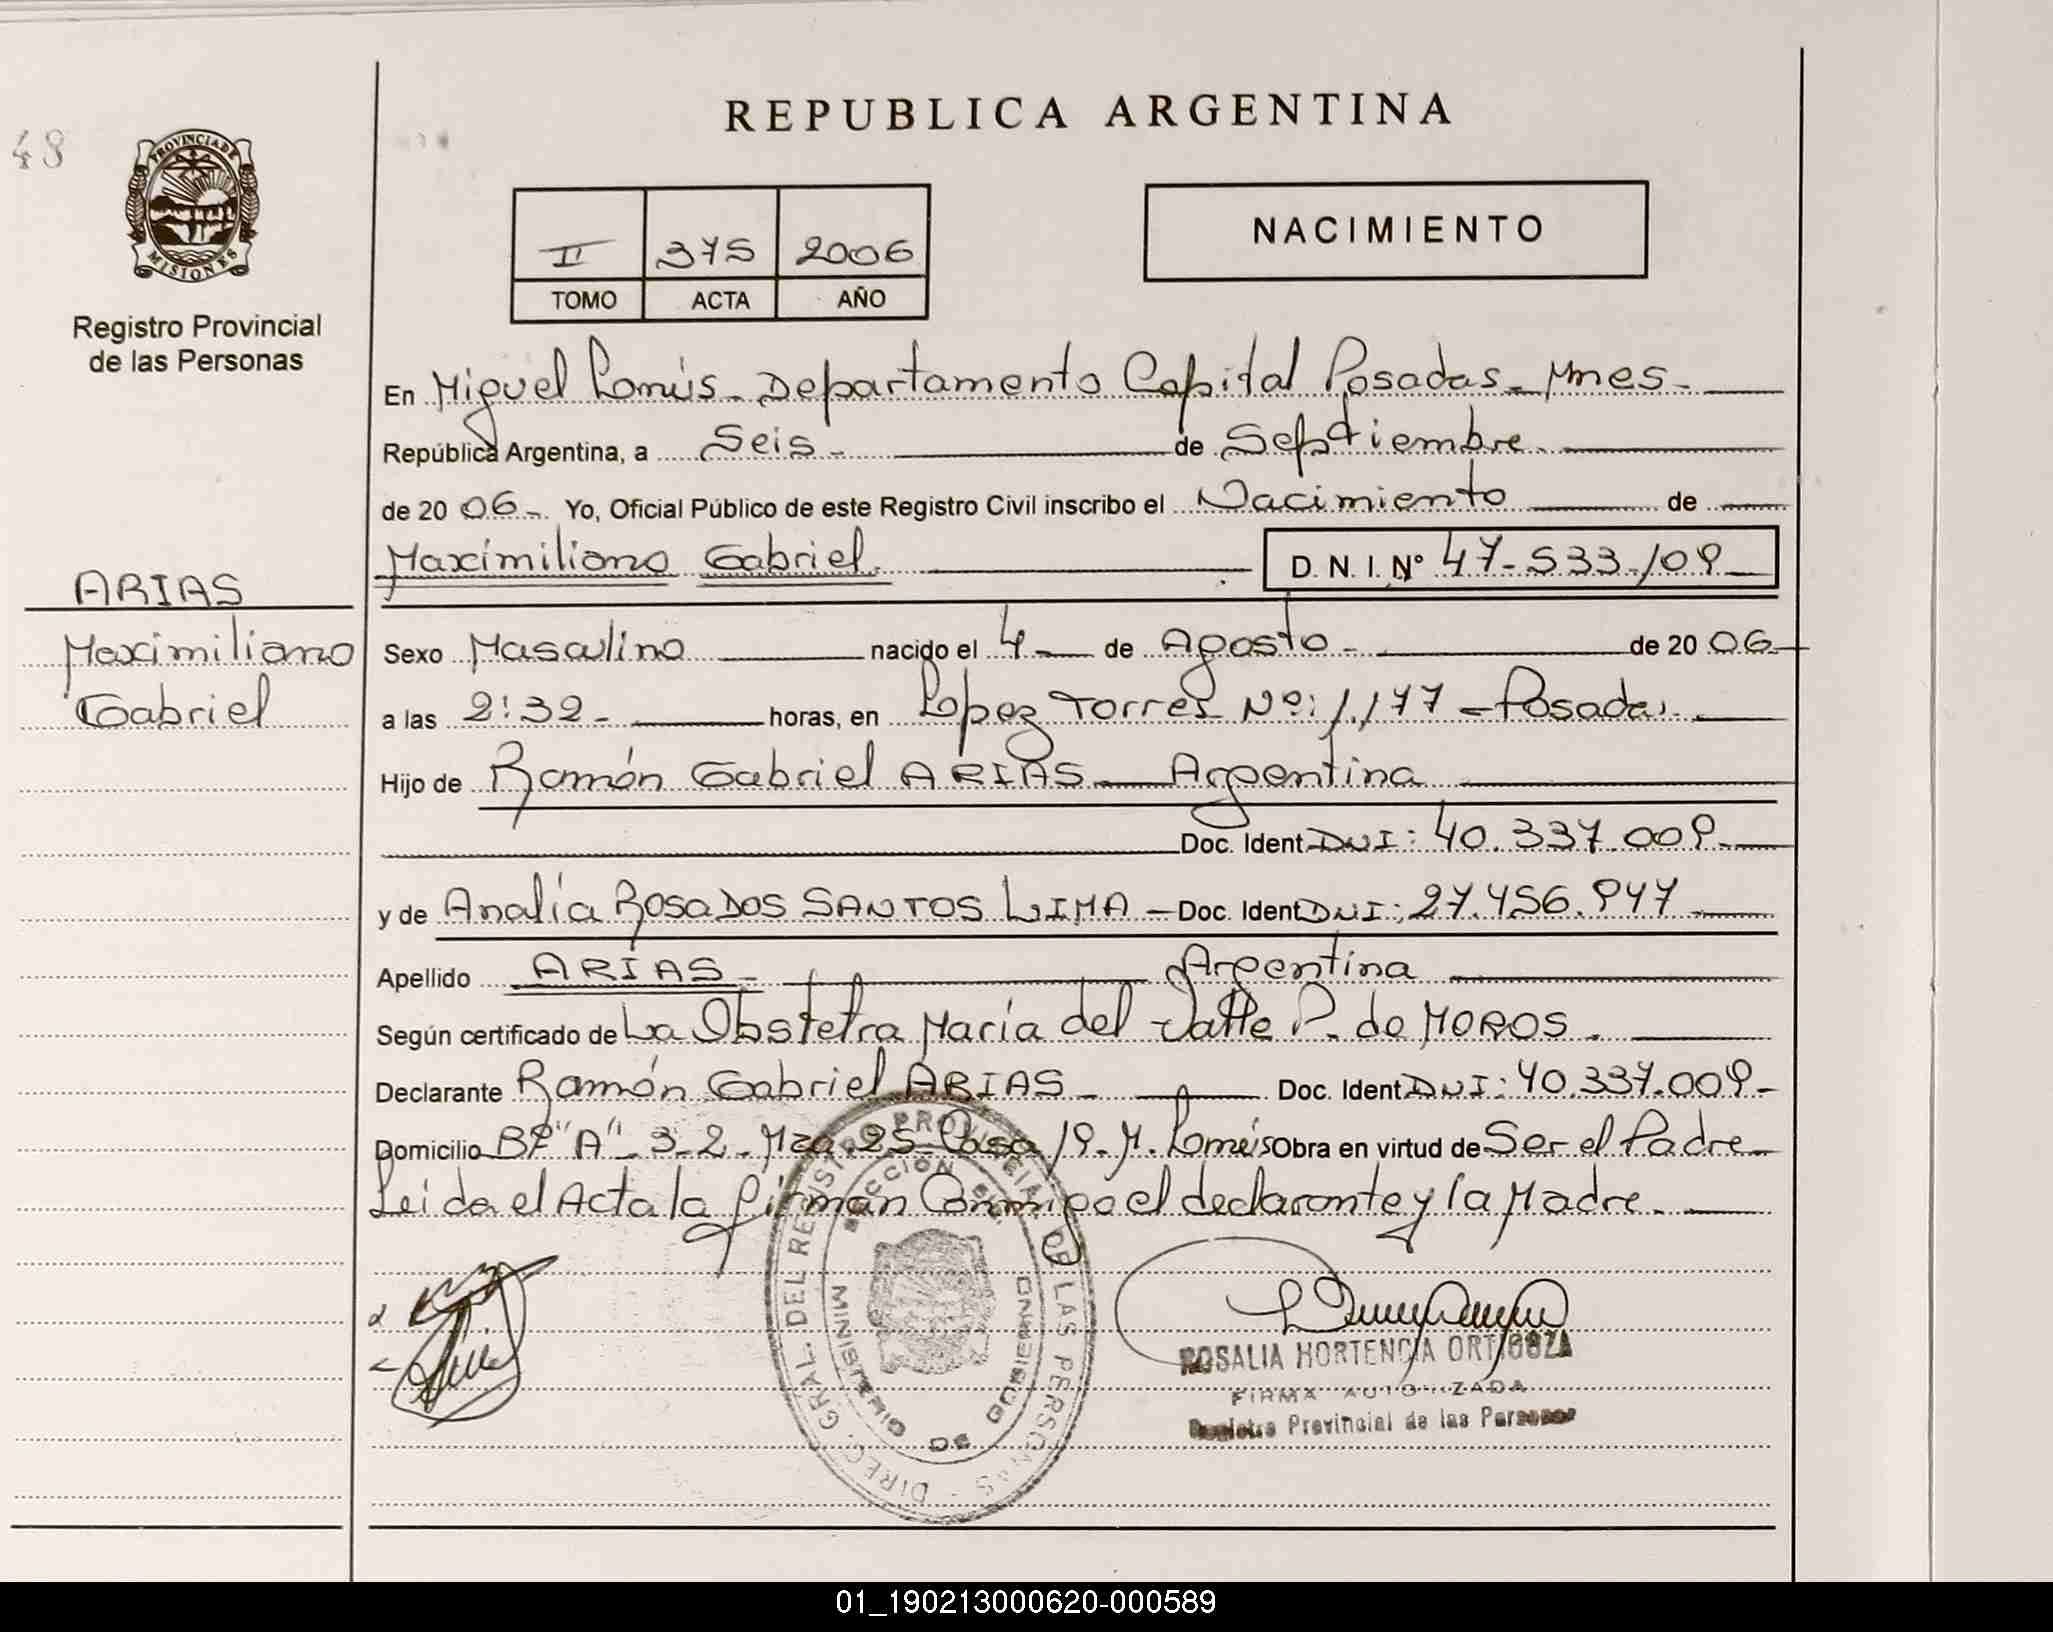 REPUBLICA ARGENTINA
48
PROVINCIA DE
MISIONES
Registro Provincial
de las Personas
II 375 2006
TOMO ACTA AÑO
NACIMIENTO
En Miguel Lanús - Departamento Capital Posadas - Mnes -
República Argentina, a Seis - de Septiembre
de 20 06 - Yo, Oficial Público de este Registro Civil inscribo el Nacimiento de
Maximiliano Gabriel D. N. I. Nº 47-533-109
ARIAS
Maximiliano
Gabriel
Sexo Masculino nacido el 4 de Agosto - de 20 06
a las 2:32 - horas, en Lopez Torres Nº: 1.177 - Posadas
Hijo de Ramón Gabriel ARIAS Argentina
Doc. Ident DNI: 40.337.009 -
y de Analía Rosa DOS SANTOS LIMA - Doc. Ident DNI: 27.456.947
Apellido ARIAS - Argentina
Según certificado de La Obstetra María del Valle P. de MOROS.
Declarante Ramón Gabriel ARIAS - Doc. Ident DNI: 40.337.009 -
Domicilio Bº "A" 3-2 - Mza 25 Casa 19 - M. Lanús Obra en virtud de Ser el Padre
Leida el Acta la firman Conmigo el declarante y la Madre.
DIREC. GRAL. DEL REGISTRO PROVINCIAL DE LAS PERSONAS
MINISTERIO DE GOBIERNO
ROSALIA HORTENCIA ORTIGOZA
FIRMA AUTORIZADA
Registro Provincial de las Personas
01_190213000620-000589